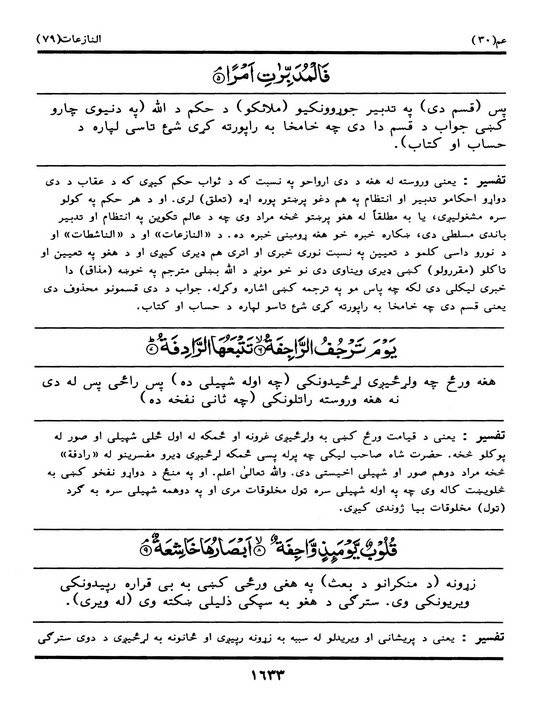 عم(۳۰)
النازعات(۷۹)
فَالْمُدَبِّرٰتِ اَمْرًا ۝۵
پس (قسم دی) په تدبیر جوړوونکیو (ملائکو) د حکم د الله (په دنیوی چارو
کښی جواب د قسم دا دی چه خامخا به راپورته کړی شئ تاسی لپاره د
حساب او کتاب).
تفسیر : یعنی وروسته له هغه د دی ارواحو په نسبت که د ثواب حکم کیږی که د عقاب د دی
دواړو احکامو تدبیر او انتظام په هم دغو پرښتو پوره اړه (تعلق) لری. او د هر حکم په کولو
سره مشغولیږی، یا به مطلقاً له هغو پرښتو څخه مراد وی چه د عالم تکوین په انتظام او تدبیر
باندی مسلطی دی، ښکاره خبره خو هغه ړومبنی خبره ده. د «النازعات» او د «الناشطات» او
د نورو داسی کلمو د تعیین په نسبت نوری خبری او اتری هم ډیری کیږی او د هغو په تعیین او
تاکلو (مقررولو) کښی ډیری ویناوی دی نو خو مونږ د الله بښلی مترجم په خوښه (مذاق) دا
خبری لیکلی دی لکه چه پاس مو په ترجمه کښی اشاره وکړله. جواب د دی قسمونو محذوف دی
یعنی قسم دی چه خامخا به راپورته کړی شئ تاسو لپاره د حساب او کتاب.
یَوْمَ تَرْجُفُ الرَّاجِفَةُ ۝۶ تَتْبَعُهَا الرَّادِفَةُ ۝۷
هغه ورځ چه ولړځیږی لړځیدونکی (چه اوله شپیلی ده) پس رائځی پس له دی
نه هغه وروسته راتلونکی (چه ثانی نفخه ده)
تفسیر : یعنی د قیامت ورځ کښی به ولړځیږی غرونه او ځمکه له اول ځلی شپیلی او صور له
پوکلو څخه. حضرت شاه صاحب لیکی چه پرله پسی ځمکه لړځیږی ډیرو مفسرینو له «رادفة»
څخه مراد دوهم صور او شپیلی اخیستی دی. والله تعالیٰ اعلم. او په منځ د دواړو نفخو کښی به
څلویښت کاله وی چه په اوله شپیلی سره تول مخلوقات مری او په دوهمه شپیلی سره به گرد
(تول) مخلوقات بیا ژوندی کیږی.
قُلُوْبٌ یَّوْمَئِذٍ وَّاجِفَةٌ ۝۸ اَبْصَارُهَا خَاشِعَةٌ ۝۹
زړونه (د منکرانو د بعث) په هغی ورځی کښی به بی قراره رپیدونکی
ویریونکی وی. سترگی د هغو به سپکی ذلیلی ښکته وی (له ویری).
تفسیر : یعنی د پریشانی او ویریدلو له سببه به زړونه رپیږی او ځانونه به لړځیږی د دوی سترگی
۱۶۳۳